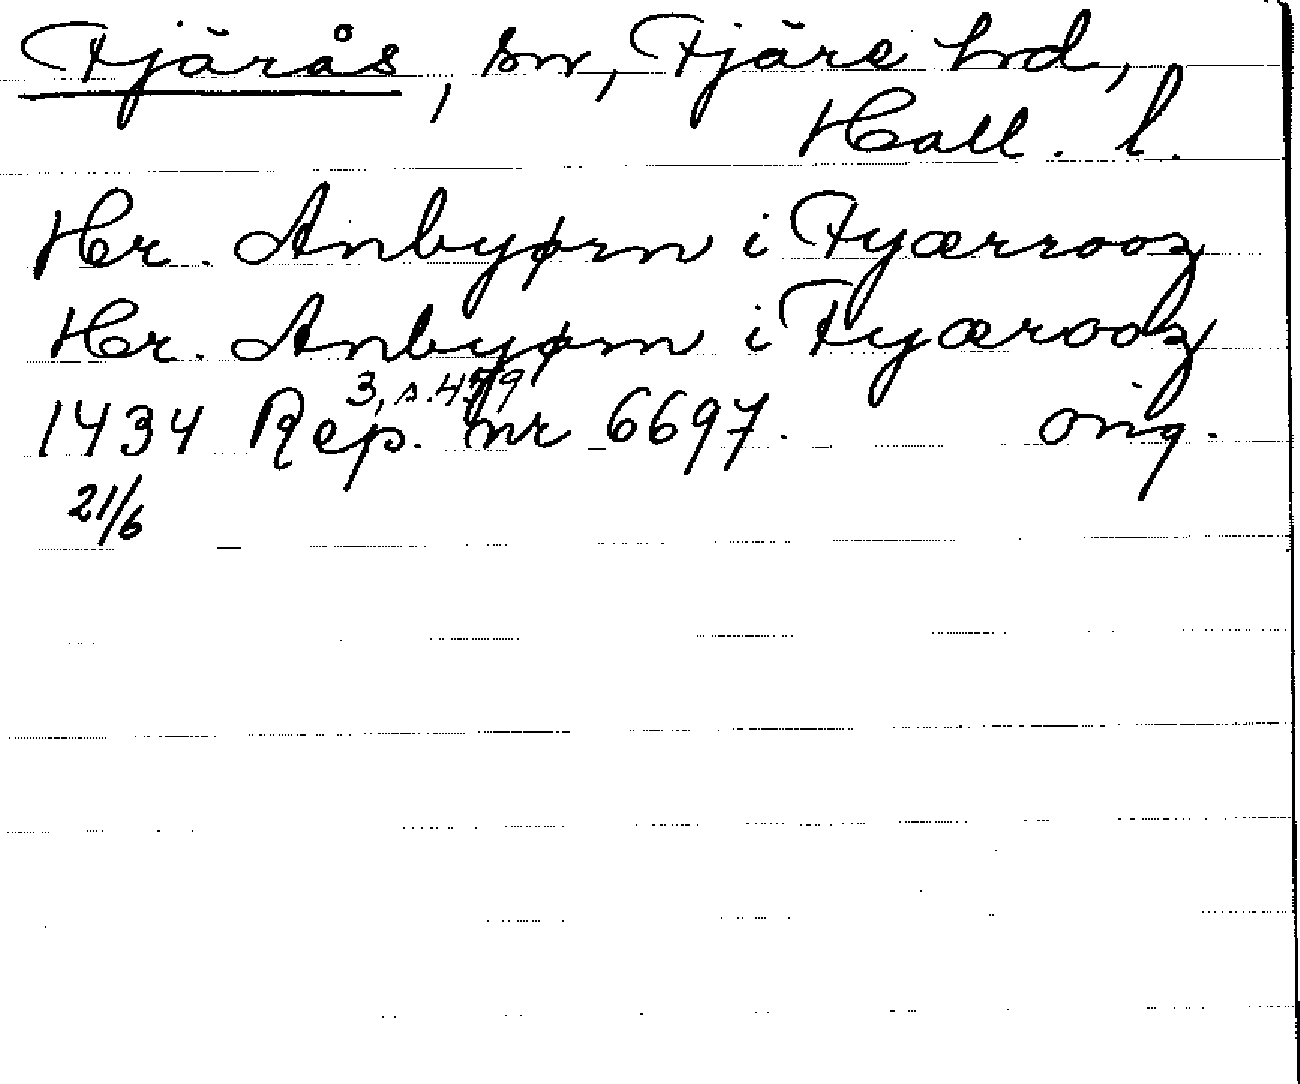 Fjärås, sn, Fjäre hd,
Hall. l.
Hr. Anbyørn i Fyærrooz
Hr. Anbyørn i Fyærooz
3, s. 459
1434 Rep. nr 6697. orig.
21/6